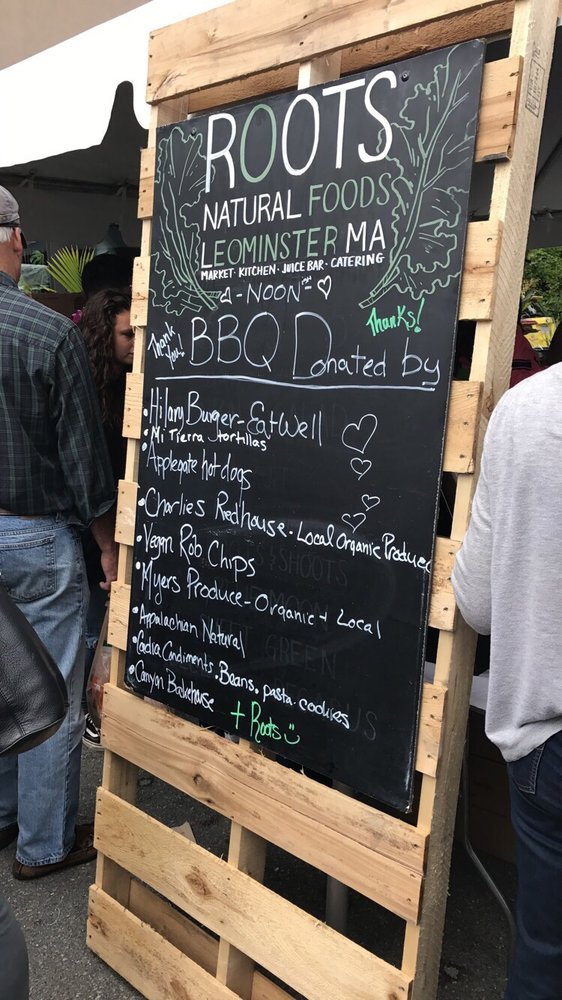 ROOTS
NATURAL FOODS
LEOMINSTER MA
MARKET · KITCHEN · JUICE BAR · CATERING
- NOON
Thanks!
Thank you
BBQ Donated by
• Hilary Burger - Eat Well
• Mi Tierra tortillas
• Applegate hot dogs
• Charlie's Redhouse - Local Organic Produce
• Vegan Rob Chips
• Myers Produce - Organic + Local
• Appalachian Natural
• Cadia Condiments, Beans, pasta, cookies
• Canyon Bakehouse
+ Roots
SHOOTS
GREEN